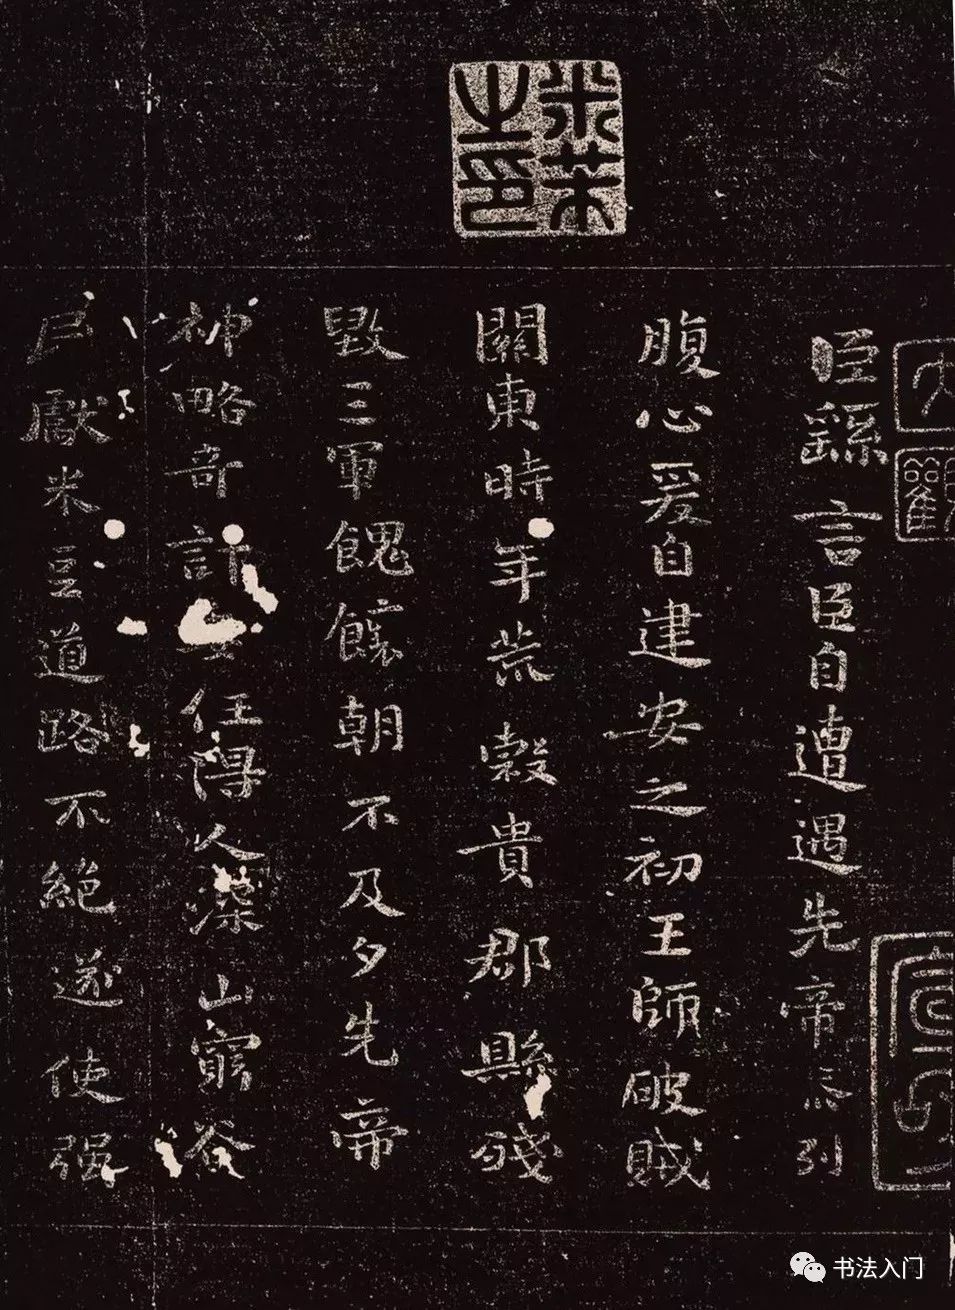 米芾之印
大觀
臣繇言臣自遭遇先帝忝列
腹心爰自建安之初王師破賊
關東時年荒穀貴郡縣殘
毀三軍餽饟朝不及夕先帝
神略奇計委任得人深山窮谷
民獻米豆道路不絕遂使强
书法入门